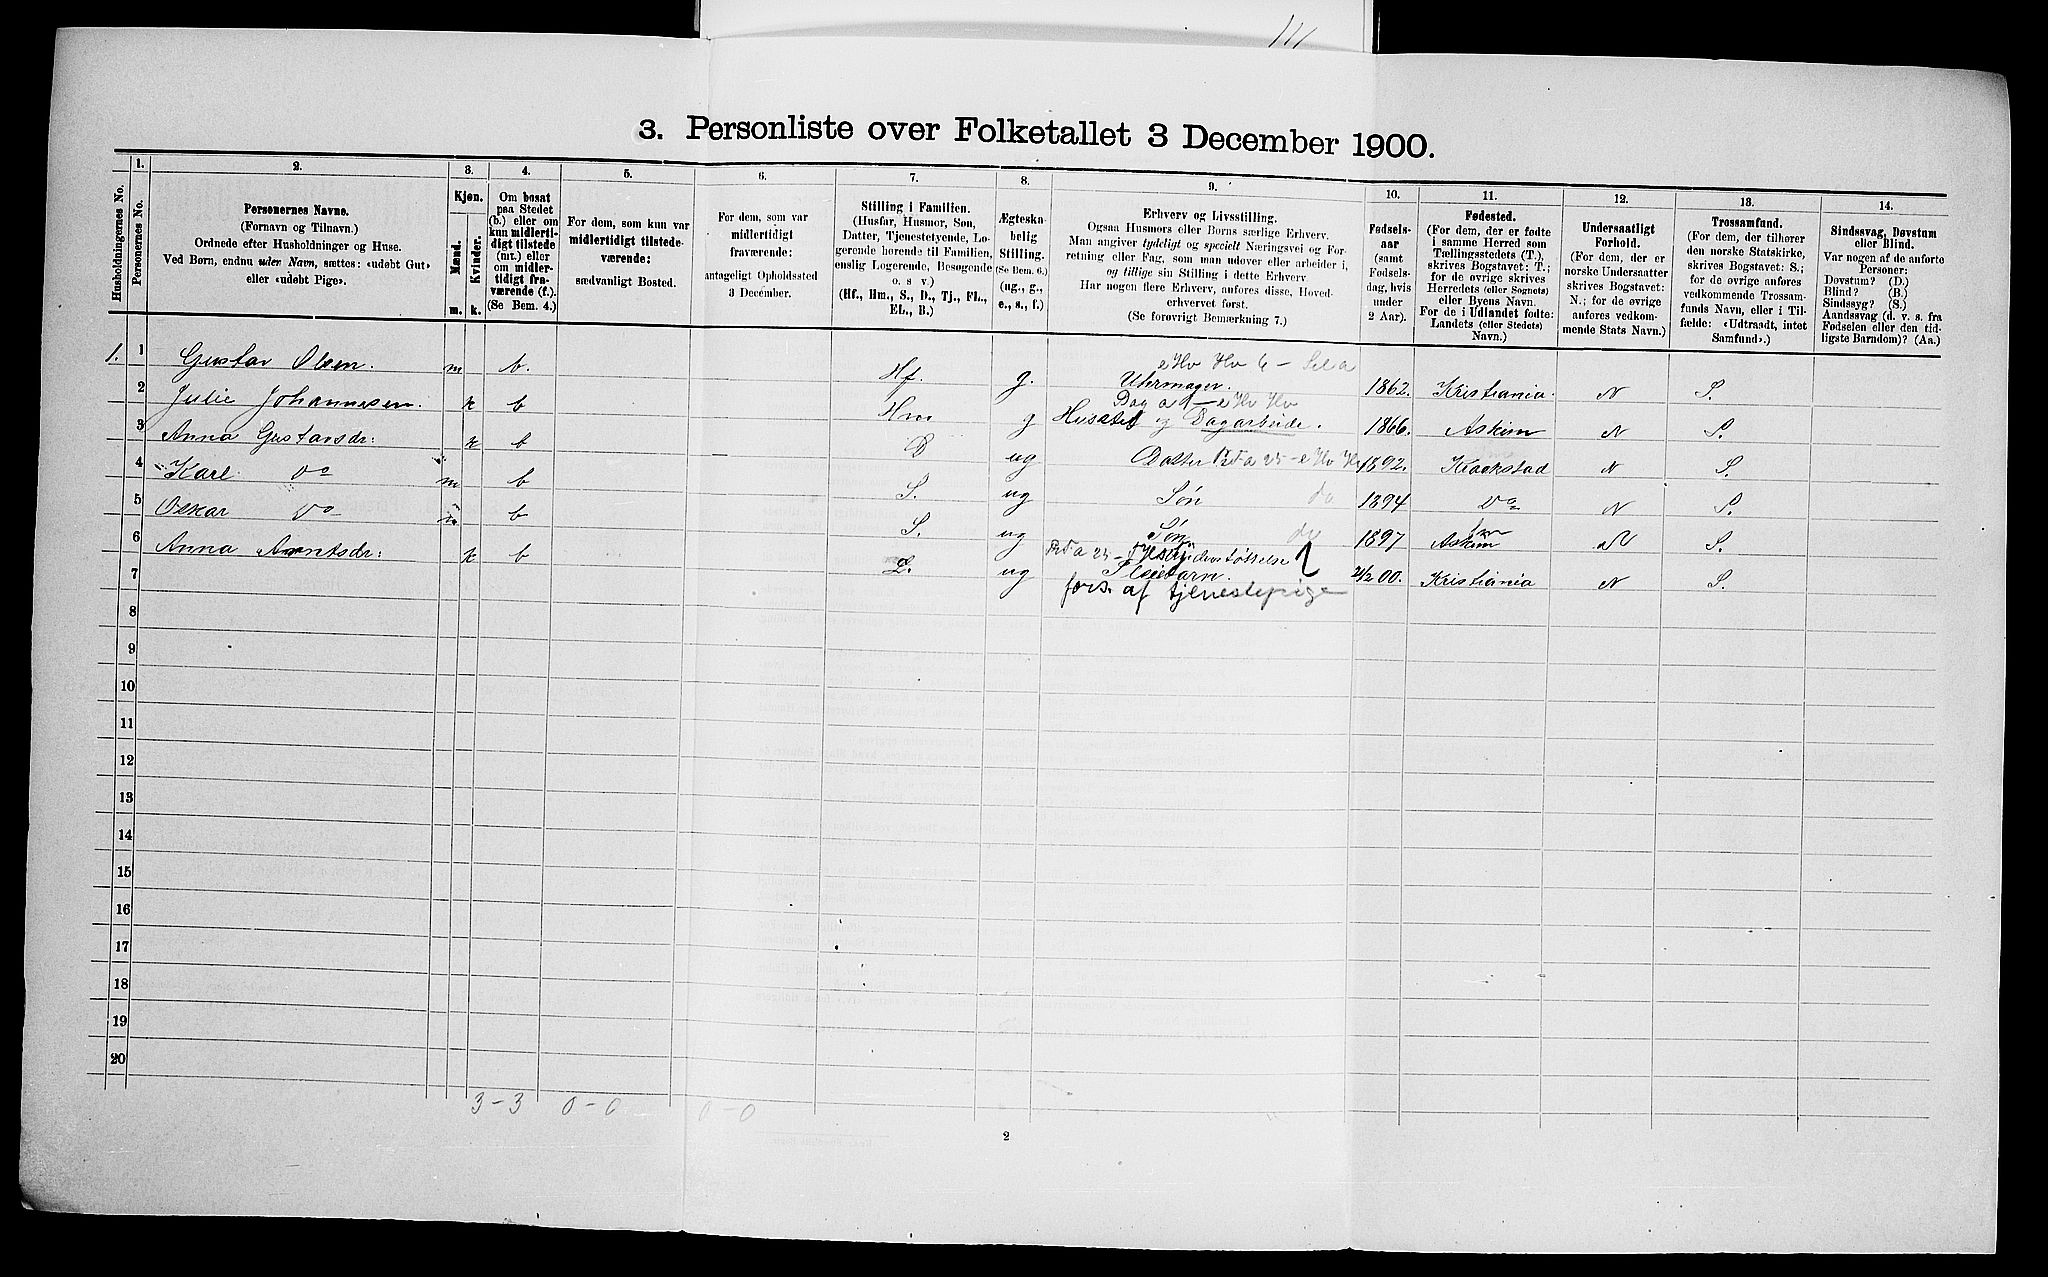 3. Personliste over Folketallet 3 December 1900.
Husholdningernes No.
1.
Personernes No.
2.
Personernes Navne.
(Fornavn og Tilnavn.)
Ordnede efter Husholdninger og Huse.
Ved Børn, endnu uden Navn, sættes: «udøbt Gut»
eller «udøbt Pige».
3.
Kjøn.
Mænd.
Kvinder.
m. k.
4.
Om bosat
paa Stedet
(b.) eller om
kun midlerti-
digt tilstede
(mt.) eller
om midler-
tidigt fra-
værende (f.).
(Se Bem. 4.)
5.
For dem, som kun var
midlertidigt tilstede-
værende:
sædvanligt Bosted.
6.
For dem, som var
midlertidigt
fraværende:
antageligt Opholdssted
3 December.
7.
Stilling i Familien.
(Husfar, Husmor, Søn,
Datter, Tjenestetyende, Lo-
gerende hørende til Familien,
enslig Logerende, Besøgende
o. s v.)
(Hf., Hm., S., D., Tj., FL.,
EL., B.)
8.
Ægteska-
belig
Stilling.
(Se Bem. 6.)
(ug., g.,
e., s., f.)
9.
Erhverv og Livsstilling.
Ogsaa Husmors eller Børns særlige Erhverv.
Man angiver tydeligt og specielt Næringsvei og For-
retning eller Fag, som man udøver eller arbeider i,
og tillige sin Stilling i dette Erhverv
Har nogen flere Erhverv, anføres disse, Hoved-
erhvervet først.
(Se forøvrigt Bemærkning 7.)
10.
Fødsels-
aar
(samt
Fødsels-
dag, hvis
under
2 Aar).
11.
Fødested.
(For dem, der er fødte
i samme Herred som
Tællingsstedets (T.),
skrives Bogstavet: T.;
for de øvrige skrives
Herredets (eller Sognets)
eller Byens Navn.
For de i Udlandet fødte:
Landets (eller Stedets)
Navn.)
12.
Undersaatligt
Forhold.
(For dem, der er
norske Undersaatter
skrives Bogstavet:
N.; for de øvrige
anføres vedkom-
mende Stats Navn.)
13.
Trossamfund.
(For dem, der tilhører
den norske Statskirke,
skrives Bogstavet: S.;
for de øvrige anføres
vedkommende Trossam-
funds Navn, eller i Til-
fælde: «Udtraadt, intet
Samfund».)
14.
Sindssvag, Døvstum
eller Blind.
Var nogen af de anførte
Personer:
Døvstum? (D.)
Blind? (B.)
Sindssyg? (S.)
Aandssvag (d. v. s. fra
Fødselen eller den tid-
ligste Barndom)? (Aa.)
1. 1 Gustav Olsen. m b. Hf. g. Uhrmager. 1862. Kristiania. N S.
2 Julie Johannesen k b Hm g Husstel og Dagarbeide. 1866. Askim N S.
3 Anna Gustavsdr: k b D ug Datter 1892. Kraakstad N S.
4 Karl do m b S. ug Søn do 1894 do N S.
5 Oskar do m b S. ug Søn do 1897 Askim N S.
6 Anna Arntsdr: k b ug Pleiebarn. 2/2 00. Kristiania N S.
7 fors. af tjenestepige
8
9
10
11
12
13
14
15
16
17
18
19
20
3-3 0-0 0-0
2